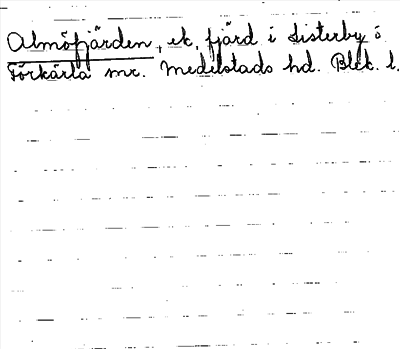 Almöfjärden, ek. fjärd i Listerby o
Förkärla snr. Medelstads hd. Blek. l.